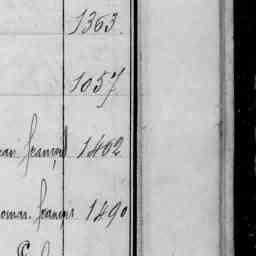 1363.
1057
françois 1402
françois 1490